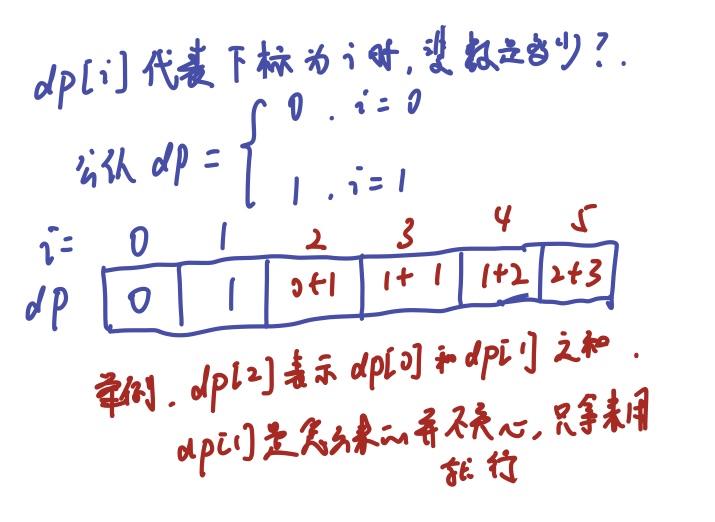 dp[i] 代表下标为i时，斐数是多少？.
公式 dp = { 0 . i = 0
1 . i = 1
i= 0 1 2 3 4 5
dp 0 1 0+1 1+1 1+2 2+3
举例. dp[2]表示 dp[0] 和 dp[1] 之和.
dp[1] 是怎么来的并不关心, 只拿来用
就行